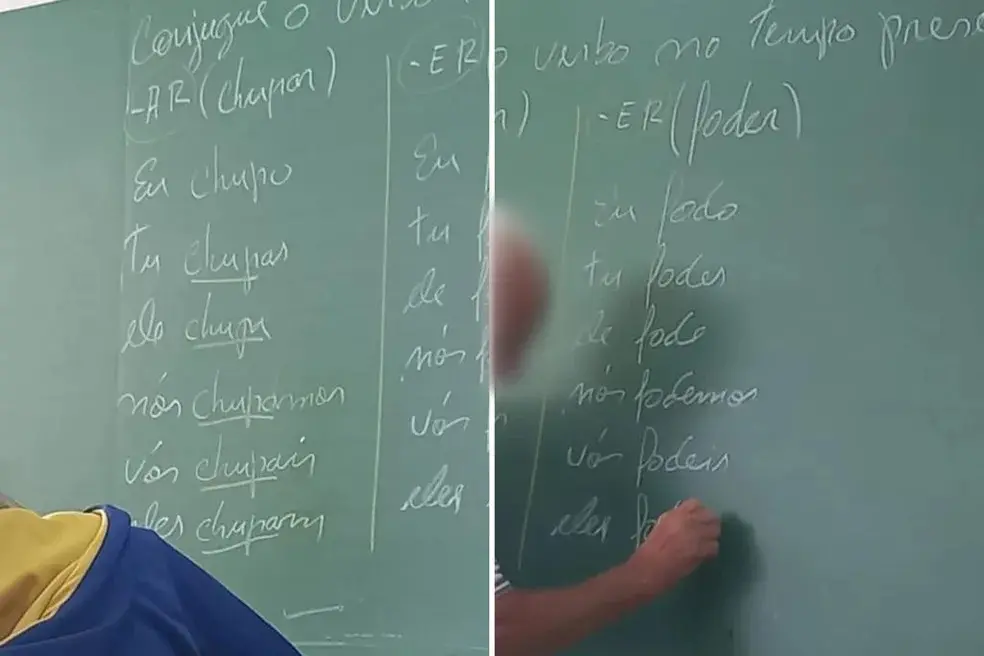 Conjugue o
-AR (chupar)
Eu chupo
tu chupas
ele chupa
nós chupamos
vós chupais
eles chupam
-ER
Eu
tu
ele
nós
vós
eles
o verbo no tempo prese
-ER (foder)
Eu fodo
tu fodes
ele fode
nós fodemos
vós fodeis
eles fo